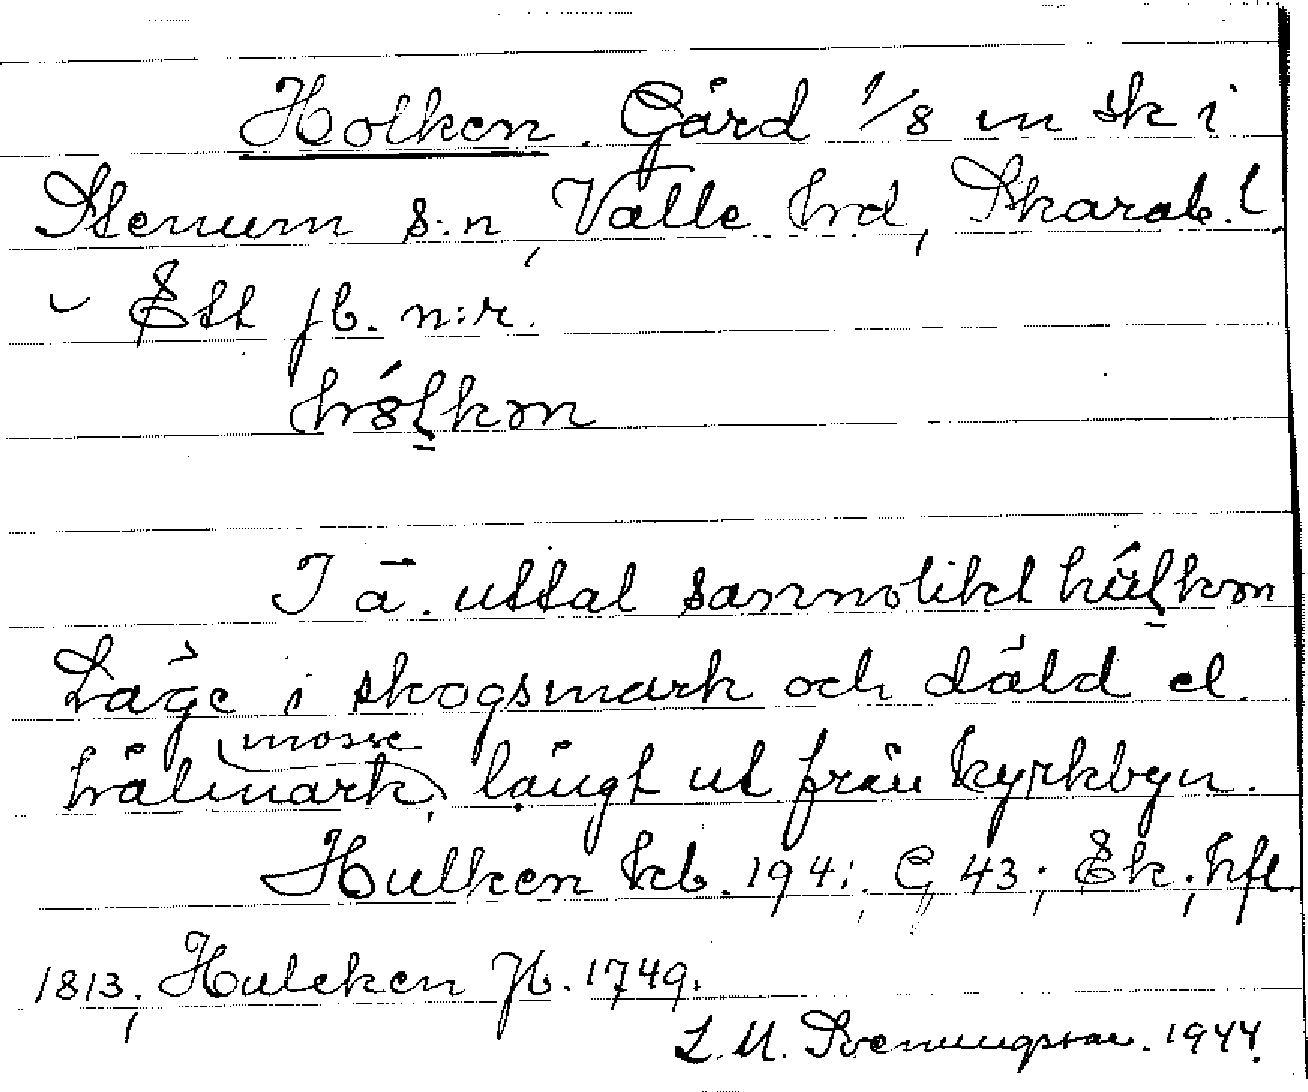 Holken. Gård 1/8 m sk i
Stenum s:n, Valle hrd, Skarab. l.
Ett jb. n:r.
hólkən
I ä. uttal sannolikt húlkən
Läge i skogsmark och däld el.
mosse
hålmark, långt ut från kyrkbyn.
Hulken kb. 194; G, 43; Ek; hfl
1813; Hulcken Jb. 1749.
L. M. Svenungsson. 1944.